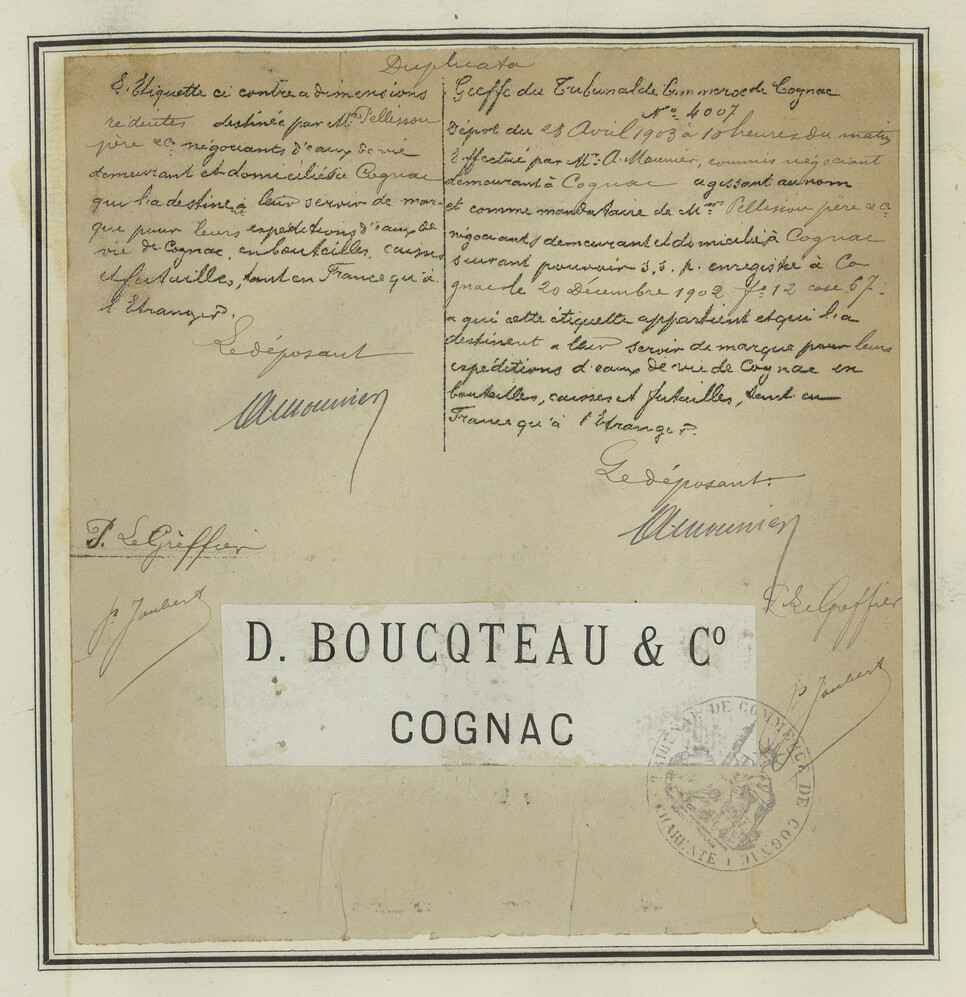 Duplicata
L'Etiquette ci contre a dimensions
réduites destinée par Mrs Pellisson
père & Co négociants d'eaux de vie
demeurant et domiciliés à Cognac
qui l'a destinent à leur servir de mar-
que pour leurs expéditions d'eaux de
vie de Cognac, en bouteilles, caisses
et futailles, tant en France qu'à
l'Etranger.
Le déposant
A. Mounier
P. Le Greffier
P. Joubert
Greffe du Tribunal de Commerce de Cognac
No 4007
Dépôt du 28 Avril 1903 à 10 heures du matin
Effectué par Mr A. Mounier, commis négociant
demeurant à Cognac agissant au nom
et comme mandataire de Mrs Pellisson père & Co
négociants demeurant et domiciliés à Cognac
suivant pouvoir s. s. p. enregistré à Co
gnac le 20 Décembre 1902 fo 12 case 67.
a qui cette étiquette appartient et qui l'a
destinent a leur servir de marque pour leurs
expéditions d'eaux de vie de Cognac en
bouteilles, caisses et futailles, tant en
France qu'à l'Etranger.
Le déposant
A. Mounier
P. Le Greffier
P. Joubert
D. BOUCQTEAU & Co
COGNAC
TRIBUNAL DE COMMERCE DE COGNAC
CHARENTE